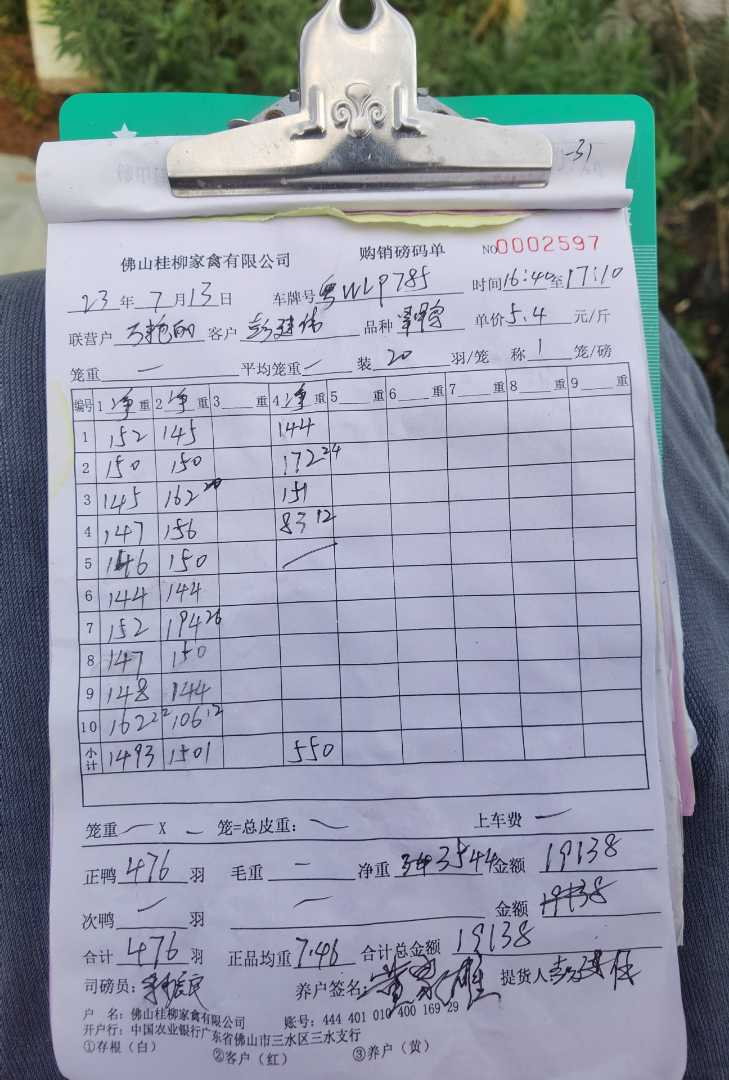 -31
佛山桂柳家禽有限公司 购销磅码单 NO0002597
23 年 7 月 13 日 车牌号 粤WLP785 时间 16:40 至 17:10
联营户 客户 彭建伟 品种 单价 5.4 元/斤
笼重 — 平均笼重 — 装 20 羽/笼 称 1 笼/磅
编号 1 净 重 2 净 重 3 重 4 净 重 5 重 6 重 7 重 8 重 9 重
1 152 145 144
2 150 150 172 24
3 145 162 20 151
4 147 156 83 12
5 146 150
6 144 144
7 152 194 26
8 147 150
9 148 144
10 162 22 106 12
小计 1493 1501 550
笼重 — X — 笼=总皮重: — 上车费 —
正鸭 476 羽 毛重 — 净重 3544 金额 19138
次鸭 — 羽 — 金额 19138
合计 476 羽 正品均重 7.46 合计总金额 19138
司磅员: 养户签名: 提货人
户 名: 佛山桂柳家禽有限公司 账号: 444 401 010 400 169 29
开户行: 中国农业银行广东省佛山市三水区三水支行
①存根(白) ②客户(红) ③养户(黄)